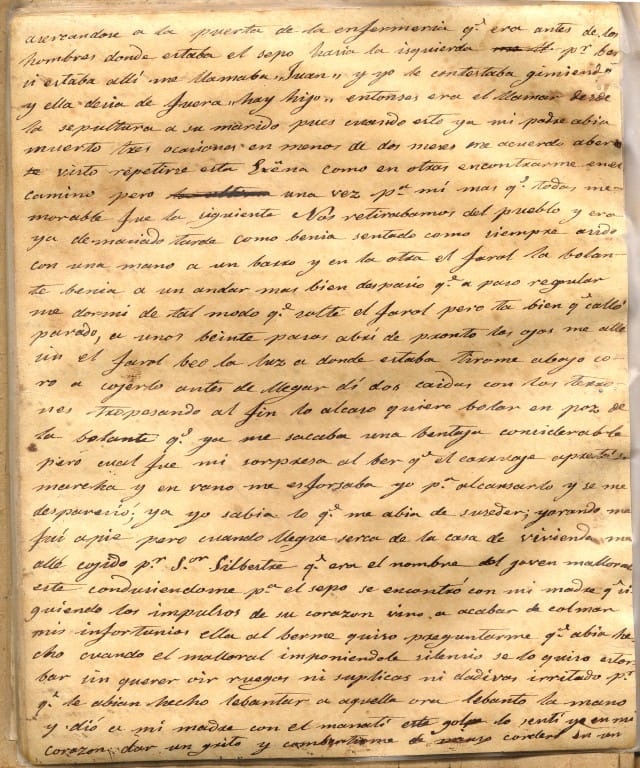 acercandose a la puerta de la enfermeria qe. era antes de los
hombres donde estaba el sepo hasia la isquierda pr. ber
si estaba alli me llamaba „Juan„ y yo le contestaba gimiendo
y ella desia de fuera „hay hijo„ entonses era el llamar desde
la sepultura a su marido pues cuando esto ya mi padre abia
muerto tres ocaciones en menos de dos meses me acuerdo aber
visto repetirse esta Exêna como en otras encontrarme en el
camino pero una vez pa. mi mas qe. todas me-
morable fue la siguiente Nos retirabamos del pueblo y era
ya demaciado tarde como benia sentado como siempre acido
con una mano a un barro y en la otra el farol la bolan-
te benia a un andar mas bien despasio qe. a paso regular
me dormi de tal modo qe. solté el farol pero ta bien qe. calló
parado, a unos beinte pasos abrí de pronto los ojos me allé
sin el farol beo la luz a donde estaba tirome abajo co-
rro a cojerlo antes de llegar dí dos caidas con los terro-
nes tropesando al fin lo alcaso quiero bolar en poz de
la bolante qe. ya me sacaba una bentaja considerable
pero cual fue mi sorpresa al ber qe. el carruaje apretó su
marcha y en vano me esforsaba yo pa. alcansarlo y se me
desparecio; ya yo sabia lo qe. me abia de suseder; yorando me
fuí apie pero cuando llegue serca de la casa de vivienda me
allé cojido pr. Sor. Silbestre qe. era el nombre del joven malloral
este condusiendome pa. el sepo se encontró con mi madre qe. si-
guiendo los impulsos de su corazon vino a acabar de colmar
mis infortunios ella al berme quiso preguntarme qe. abia he-
cho cuando el malloral imponiendole silensio se lo quiso estor-
bar sin querer oir ruegos ni suplicas ni dadivas irritado pr.
qe. le abian hecho lebantar a aquella ora lebanto la mano
y dió a mi madre con el manatí este golpe lo sentí yo en mi
corazon dar un grito y combertirme de manso cordero en un